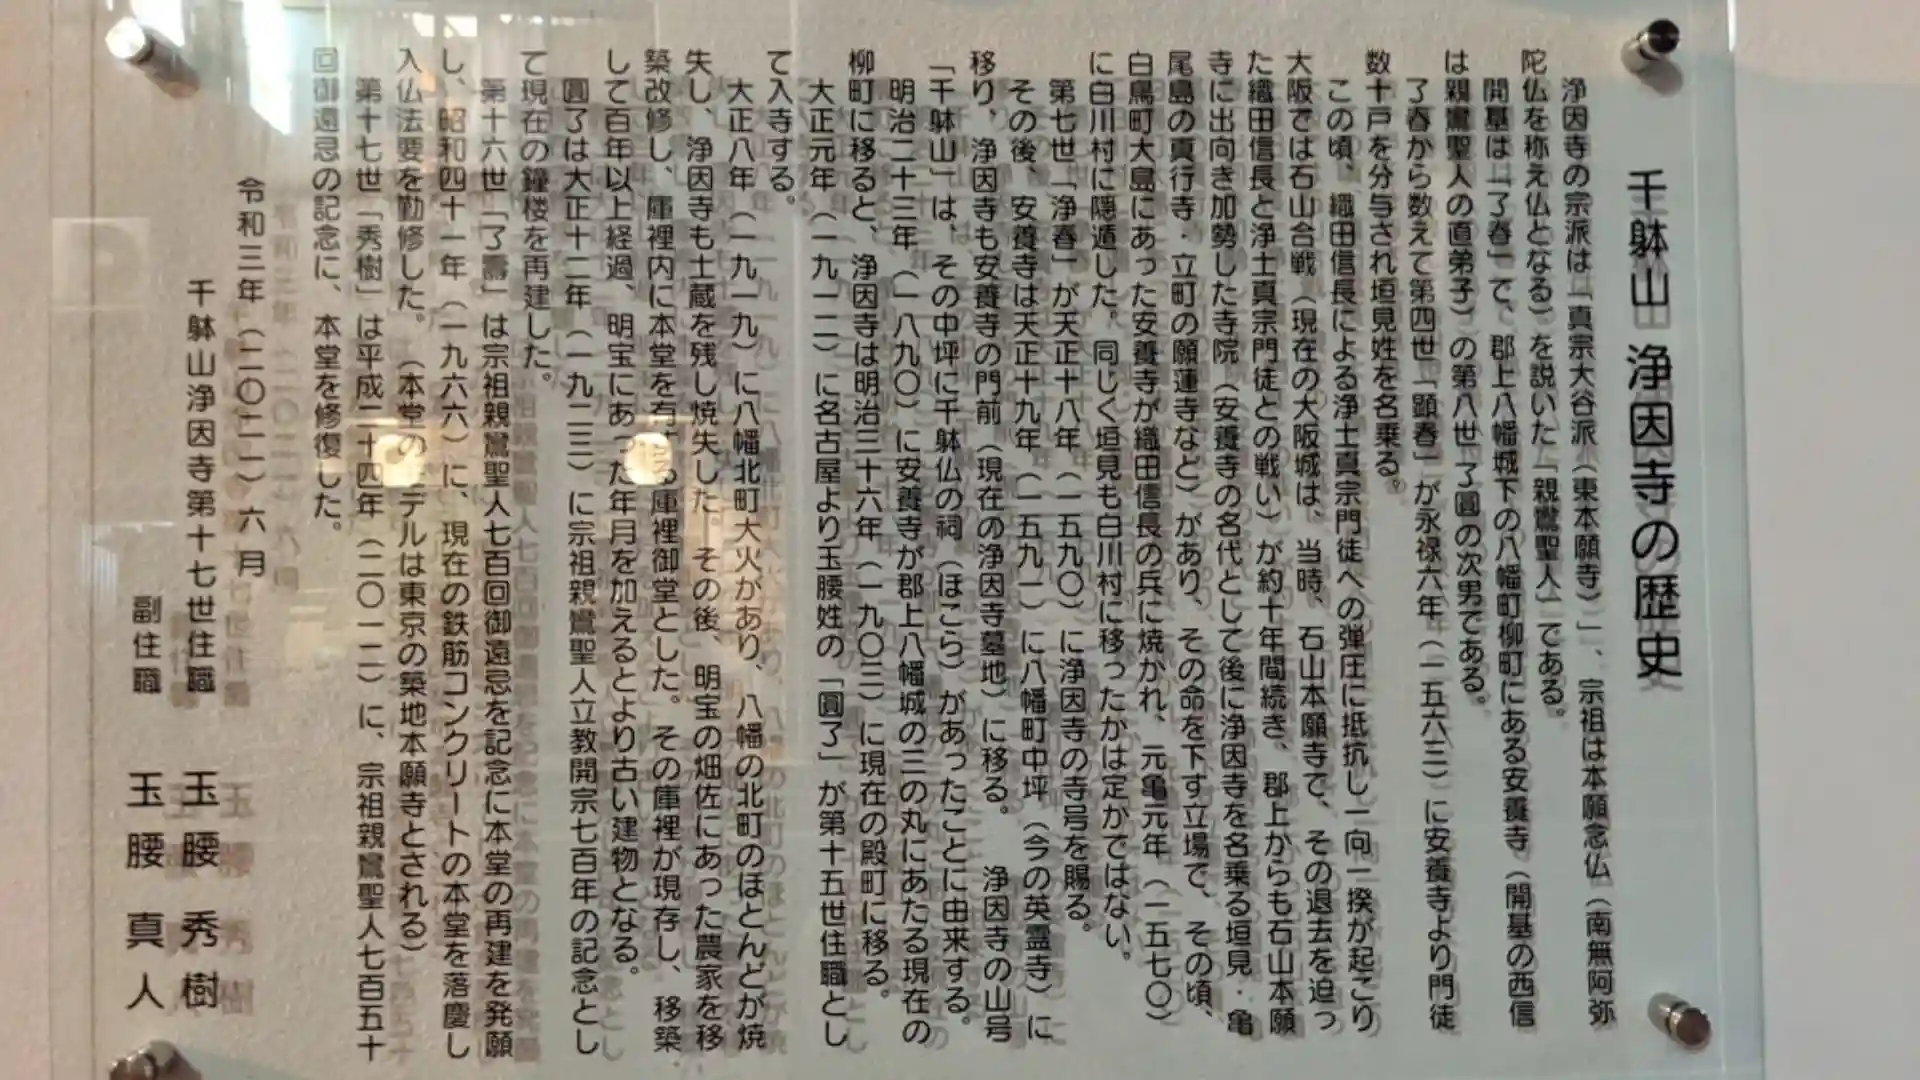 千躰山 浄因寺の歴史
浄因寺の宗派は「真宗大谷派（東本願寺）」、宗祖は本願念仏（南無阿弥
陀仏を称え仏となる）を説いた「親鸞聖人」である。
開基は「了春」で、郡上八幡城下の八幡町柳町にある安養寺（開基の西信
は親鸞聖人の直弟子）の第八世「了圓の次男である。
了春から数えて第四世「顕春」が永禄六年（一五六三）に安養寺より門徒
数十戸を分与され垣見姓を名乗る。
この頃、織田信長による浄土真宗門徒への弾圧に抵抗し一向一揆が起こり
大阪では石山合戦（現在の大阪城は、当時、石山本願寺で、その退去を迫っ
た織田信長と浄土真宗門徒との戦い）が約十年間続き、郡上からも石山本願
寺に出向き加勢した寺院（安養寺の名代として後に浄因寺を名乗る垣見・亀
尾島の真行寺・立町の願蓮寺など）があり、その命を下す立場で、その頃、
白鳥町大島にあった安養寺が織田信長の兵に焼かれ、元亀元年（一五七〇）
に白川村に隠遁した。同じく垣見も白川村に移ったかは定かではない。
第七世「浄春」が天正十八年（一五九〇）に浄因寺の寺号を賜る。
その後、安養寺は天正十九年（一五九一）に八幡町中坪（今の英霊寺）に
移り、浄因寺も安養寺の門前（現在の浄因寺墓地）に移る。 浄因寺の山号
「千躰山」は、その中坪に千躰仏の祠（ほこら）があったことに由来する。
明治二十三年（一八九〇）に安養寺が郡上八幡城の三の丸にあたる現在の
柳町に移ると、浄因寺は明治三十六年（一九〇三）に現在の殿町に移る。
大正元年（一九一二）に名古屋より玉腰姓の「圓了」が第十五世住職とし
て入寺する。
大正八年（一九一九）に八幡北町大火があり、八幡の北町のほとんどが焼
失し、浄因寺も土蔵を残し焼失した。その後、明宝の畑佐にあった農家を移
築改修し、庫裡内に本堂を有する庫裡御堂とした。その庫裡が現存し、移築
して百年以上経過、明宝にあった年月を加えるとより古い建物となる。
圓了は大正十二年（一九二三）に宗祖親鸞聖人立教開宗七百年の記念とし
て現在の鐘楼を再建した。
第十六世「了壽」は宗祖親鸞聖人七百回御遠忌を記念に本堂の再建を発願
し、昭和四十一年（一九六六）に、現在の鉄筋コンクリートの本堂を落慶し
入仏法要を勤修した。（本堂のモデルは東京の築地本願寺とされる）
第十七世「秀樹」は平成二十四年（二〇一二）に、宗祖親鸞聖人七百五十
回御遠忌の記念に、本堂を修復した。
令和三年（二〇二一）六月
千躰山浄因寺第十七世住職 玉腰 秀樹
副住職 玉腰 真人